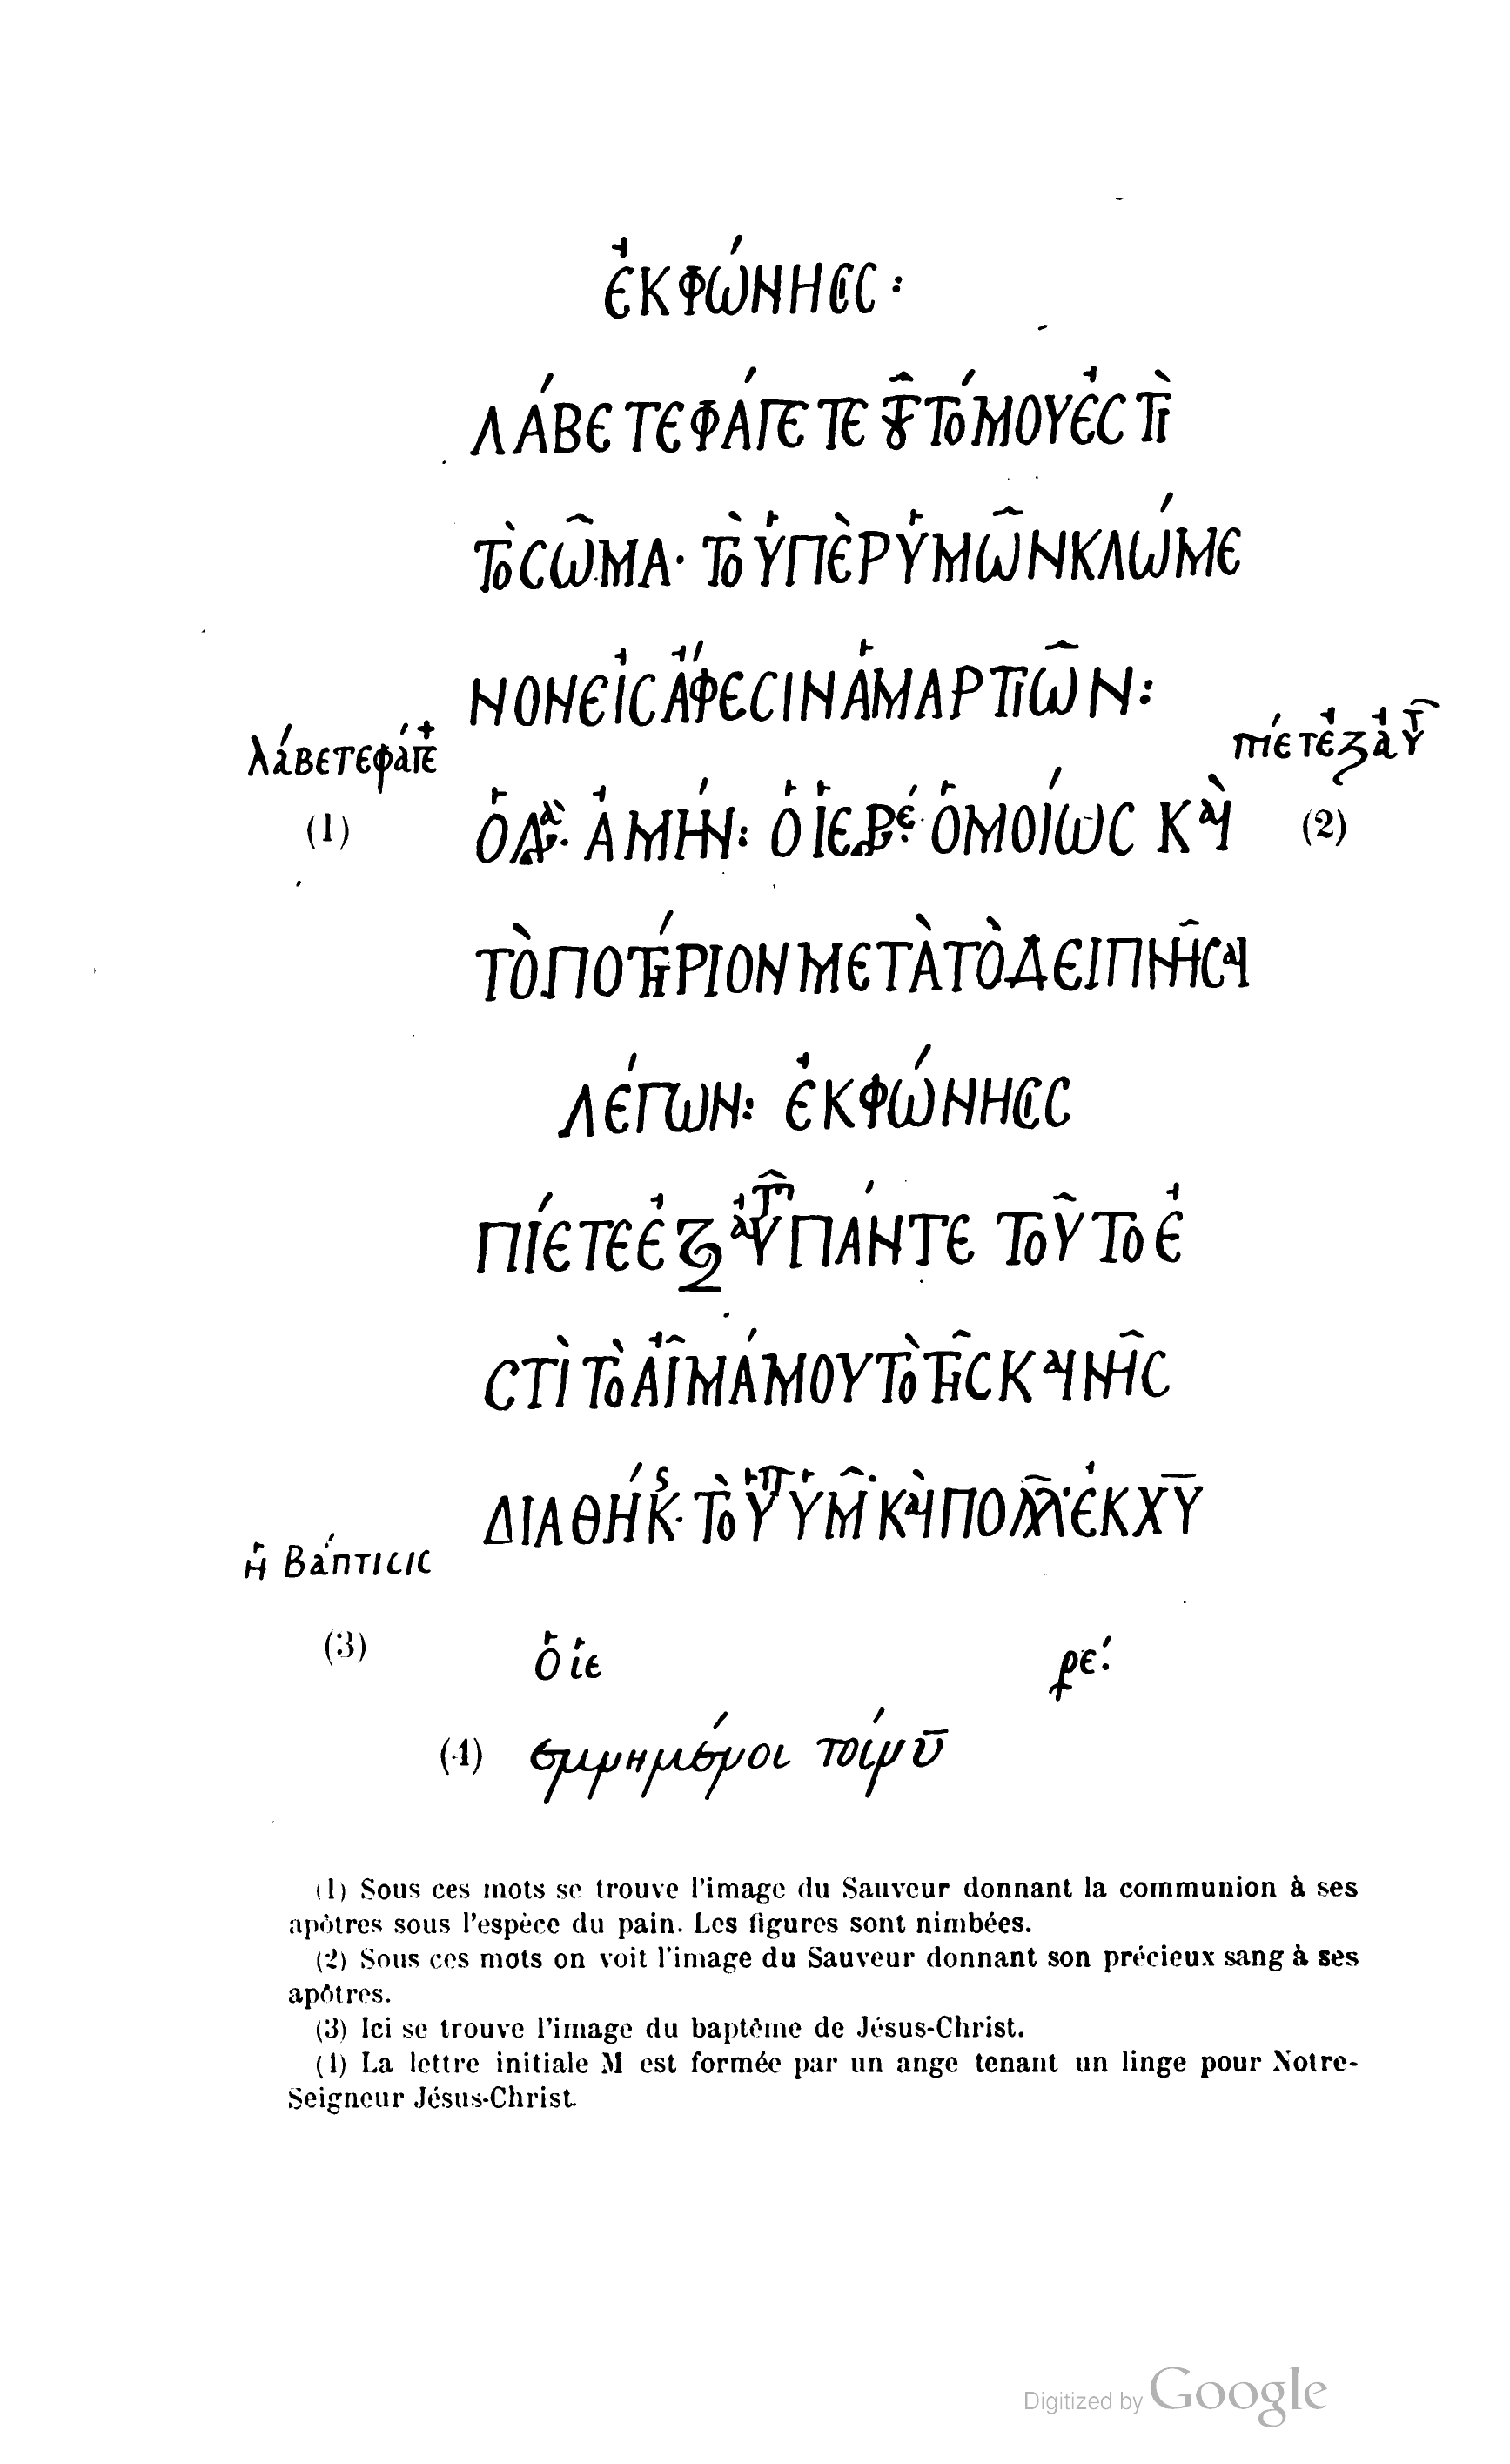 ἐΚΦώΝΗCΙC :
ΛάΒΕΤΕΦάΓΕΤΕ ΤΟῦΤόΜΟΥἐCΤὶ
ΤὸCῶΜΑ· ΤὸὑΠὲΡὑΜῶΝΚΛώΜΕ
ΝΟΝΕἰCἄΦΕCΙΝἁΜΑΡΤΙῶΝ :
λάβετεφάγε πίετεἐξαὐτ
(1) ἀΜήΝ : ὁ ἱΕΡέ· ὁΜΟίωC Κὰι (2)
ΤὸΠΟΤήΡΙΟΝΜΕΤὰΤὸΔΕΙΠΝῆCαι
ΛέΓωΝ : ἐΚΦώΝΗCΙC
ΠίΕΤΕἐξαὐτΠάΝΤΕ ΤΟῦΤΟἐ
CΤὶΤὸΑἷΜάΜΟΥΤὸΤῆCΚαιΝῆC
ΔΙΑΘήΚ· Τὸὑπὑμ̂ ΚὰιΠΟΛΛ ἐΚΧΥ
ἡ Βάπτιcιc
(3) ὁ ἱε ρέ.
(4) εμνημένοι
(1) Sous ces mots se trouve l'image du Sauveur donnant la communion à ses
apôtres sous l'espèce du pain. Les figures sont nimbées.
(2) Sous ces mots on voit l'image du Sauveur donnant son précieux sang à ses
apôtres.
(3) Ici se trouve l'image du baptême de Jésus-Christ.
(4) La lettre initiale M est formée par un ange tenant un linge pour Notre-
Seigneur Jésus-Christ.
Digitized by Google